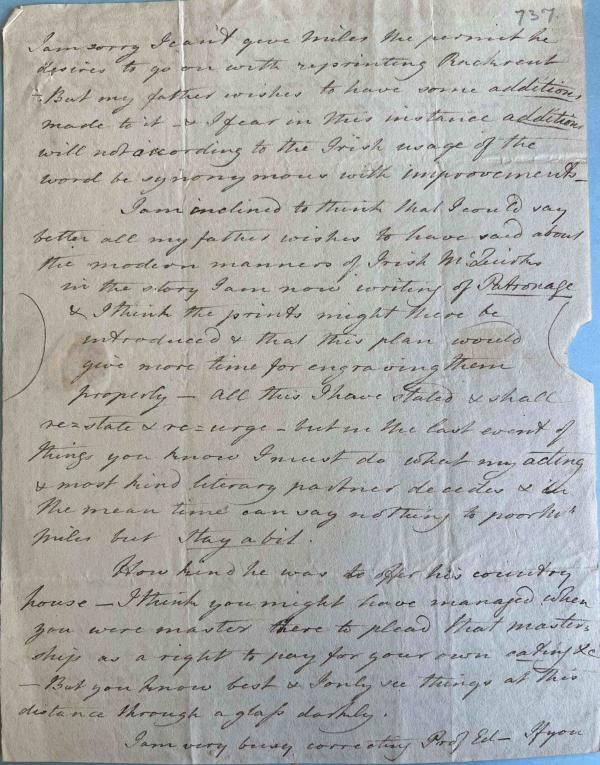 737.
I am sorry I can't give Miles the permit he
desires to go on with reprinting Rackrent
- But my father wishes to have some additions
made to it - & I fear in this instance additions
will not according to the Irish usage of the
word be synonymous with improovements -
I am inclined to think that I could say
better all my father wishes to have said about
the modern manners of Irish McQuirks
in the story I am now writing of Patronage
& I think the prints might there be
introduced & that this plan would
give more time for engraving them
properly - All this I have stated & shall
re=state & re=urge - but in the last event of
things you know I must do what my acting
& most kind literary partner decides & in
the mean time can say nothing to poor Mr
Miles but Stay a bit.
How kind he was to offer his country
house - I think you might have managed when
you were master there to plead that master=
ship as a right to pay for your own eating &c
- But you know best & I only see things at this
distance through a glass darkly.
I am very busy correcting Prof Ed - If you